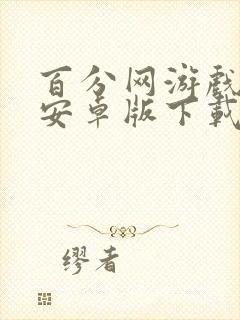 百分网游戏
安卓版下載
缪者